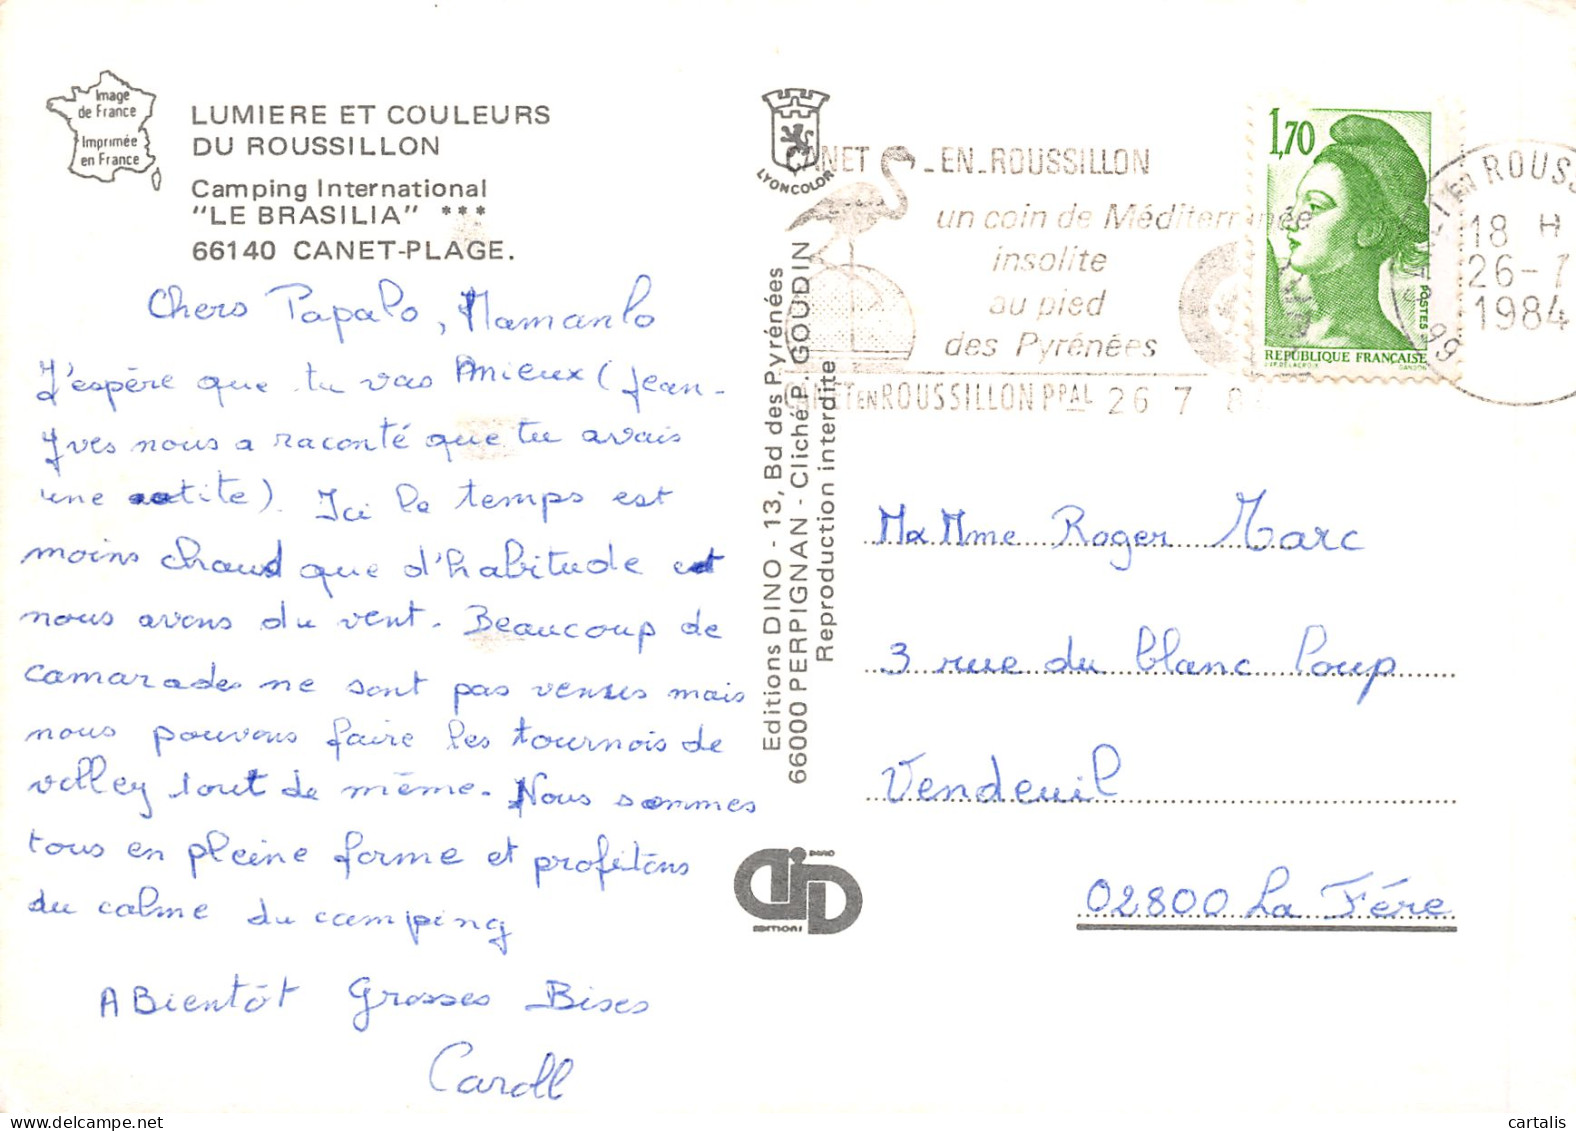 Image
de France
Imprimée
en France
LUMIERE ET COULEURS
DU ROUSSILLON
Camping International
"LE BRASILIA" ***
66140 CANET-PLAGE.
Chers Papalo, Mamanlo
J'espère que tu vas mieux (Jean-
Yves nous a raconté que tu avais
une otite). Ici le temps est
moins chaud que d'habitude et
nous avons du vent. Beaucoup de
camarades ne sont pas venus mais
nous pouvons faire les tournois de
volley tout de même. Nous sommes
tous en pleine forme et profitons
du calme du camping
A Bientôt Grosses Bises
Caroll
LYONCOLOR
Editions DINO - 13, Bd des Pyrénées
66000 PERPIGNAN - Cliché P. GOUDIN
Reproduction interdite
EDITIONS
CANET-EN-ROUSSILLON
un coin de Méditerranée
insolite
au pied
des Pyrénées
CANET EN ROUSSILLON PPAL 26 7 84
1,70
POSTES
REPUBLIQUE FRANÇAISE
GANDON
18 H
26-7
1984
66
M& Mme Roger Marc
3 rue du blanc Loup
Vendeuil
02800 La Fére
cartalis